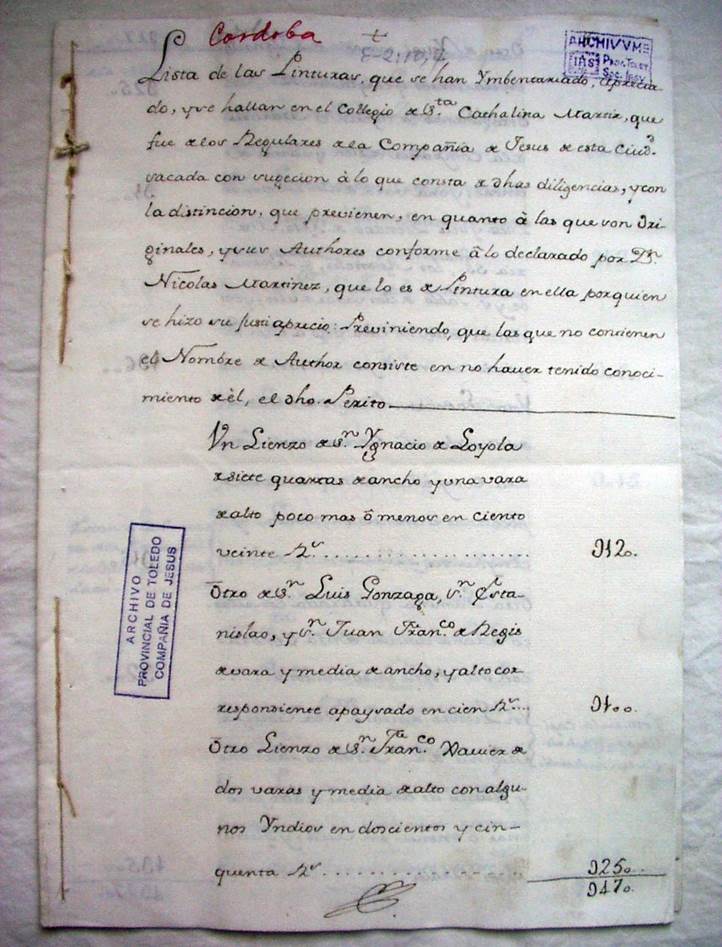 Cordoba
E-2:10,4
ARCHIVVM
Prov. Tolet.
Soc. Iesv
Lista de las Pinturas, que se han Ymbentariado, aprecia
do, y se hallan en el Collegio de S.ta Cathalina Martir, que
fue de los Regulares de la Compañia de Jesus de esta Ciud.d
sacada con sugecion à lo que consta de dhas diligencias, y con
la distincion, que previenen, en quanto à las que son Ori-
ginales, y sus Authores conforme à lo declarado por D.n
Nicolas Martinez, que lo es de Pintura en ella por quien
se hizo su Justiaprecio: Previniendo, que las que no contienen
el Nombre de Author consiste en no haver tenido conoci-
miento de èl, el dho. Perito.
Vn Lienzo de S.n Ygnacio de Loyola
de siete quartas de ancho y una vara
de alto poco mas ô menos en ciento
veinte R.s .................... 120.
Otro de S.n Luis Gonzaga, S.n Esta
nislao, y S.n Juan Fran.co de Regis
de vara y media de ancho, y alto cor
respondiente apaysado en cien R.s... 100.
Otro Lienzo de S.n Fran.co Xavier de
dos varas y media de alto con algu-
nos Yndios en doscientos y cin-
quenta R.s .................... 250.
470.
ARCHIVO
PROVINCIAL DE TOLEDO
COMPAÑIA DE JESUS